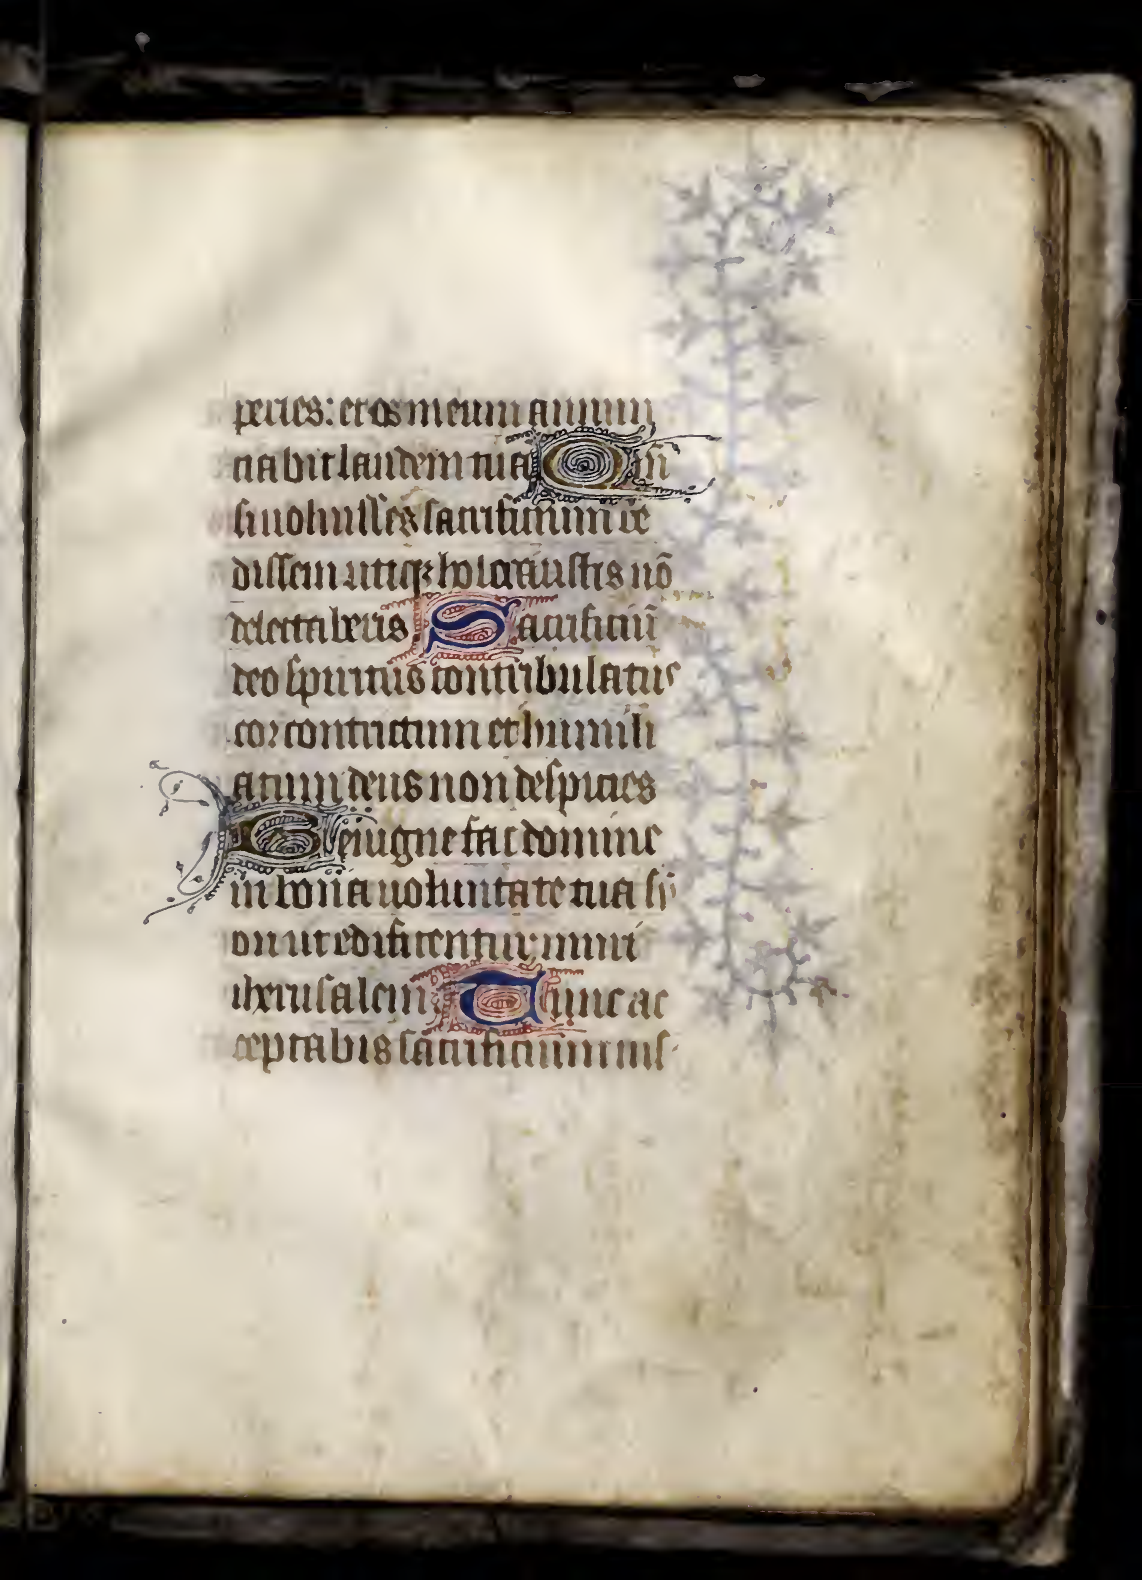 peries: et os meum annun
tiabit laudem tuā Qm̄
si uoluisses sacrificium de
dissem utiqꝫ holocaustis nō
delectaberis Sacrificiū
deo spiritus contribulatus
cor contrictum et humili
atum deus non despicies
Benigne fac domine
in bona uoluntate tua sy
on ut edificentur muri
iherusalem Tunc ac
ceptabis sacrificium ius